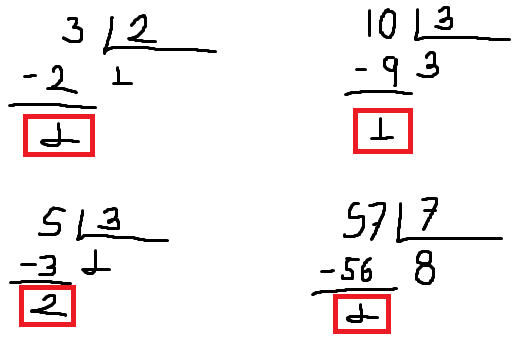 3 2
-2 1
1
10 3
-9 3
1
5 3
-3 1
2
57 7
-56 8
1